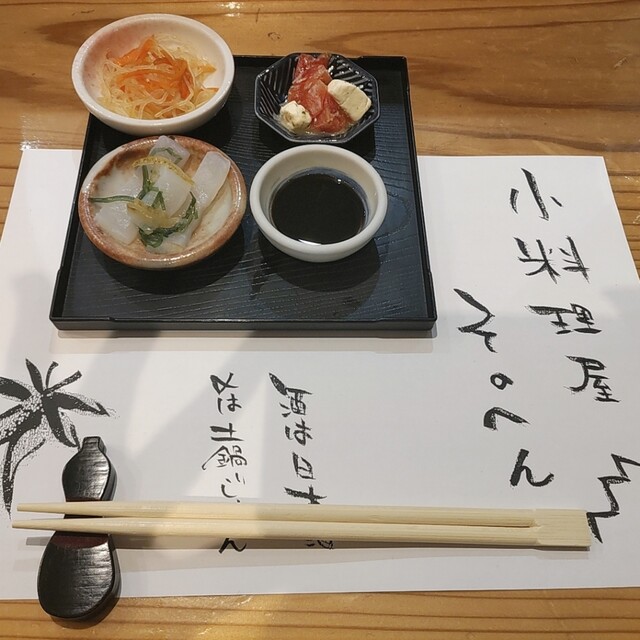 小料理屋
そのへん
酒は日本酒
〆は土鍋ごはん